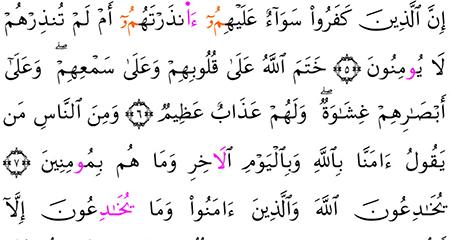 إِنَّ ٱلَّذِينَ كَفَرُوا۟ سَوَآءٌ عَلَيْهِمُۥٓ ءَا۬نذَرْتَهُمُۥٓ أَمْ لَمْ تُنذِرْهُمْ
لَا يُومِنُونَ ۝٥ خَتَمَ ٱللَّهُ عَلَىٰ قُلُوبِهِمْ وَعَلَىٰ سَمْعِهِمْۖ وَعَلَىٰٓ
أَبْصَـٰرِهِمْ غِشَـٰوَةٌۖ وَلَهُمْ عَذَابٌ عَظِيمٌ ۝٦ وَمِنَ ٱلنَّاسِ مَن
يَقُولُ ءَامَنَّا بِٱللَّهِ وَبِٱلْيَوْمِ ٱلَاخِرِ وَمَا هُم بِمُومِنِينَ ۝٧
يُخَـٰدِعُونَ ٱللَّهَ وَٱلَّذِينَ ءَامَنُوا۟ وَمَا يُخَـٰدِعُونَ إِلَّآ